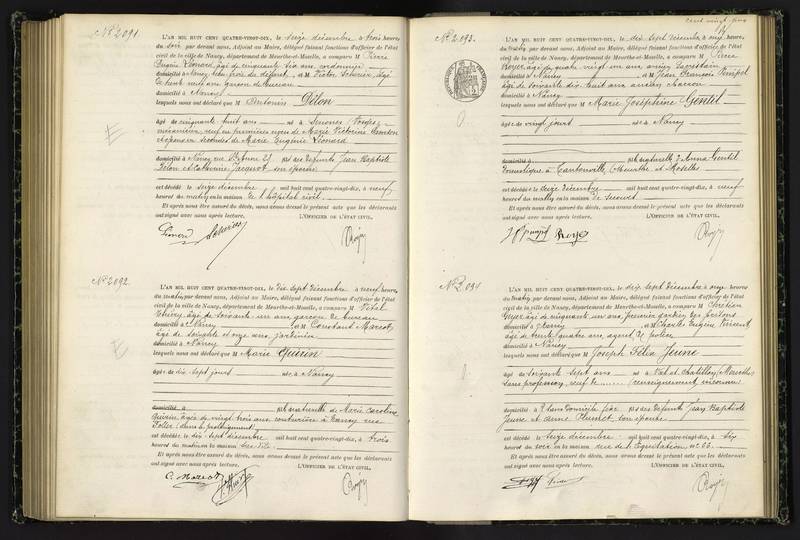 N° 2091.
L'AN MIL HUIT CENT QUATRE-VINGT-DIX, le seize décembre à trois heures
du soir par devant nous, Adjoint au Maire, délégué faisant fonctions d'officier de l'état
civil de la ville de Nancy, département de Meurthe-et-Moselle, a comparu M Pierre
Léonard, âgé de cinquante six ans, cordonnier
domicilié à Nancy et M Victor âgé
de trente neuf ans garçon de bureau
domicilié à Nancy
lesquels nous ont déclaré que M Antonin Délon
âgé de cinquante huit ans né à Senones (Vosges)
mécanicien, veuf en premières noces de Marie Victorine
époux en secondes de Marie Eugénie Léonard
domicilié à Nancy rue 25 fils des défunts Jean Baptiste
Délon et Catherine Jacquot son épouse
est décédé le seize décembre mil huit cent quatre-vingt-dix, à neuf
heures du matin en la maison de l'hôpital civil.
Et après nous être assuré du décès, nous avons dressé le présent acte que les déclarants
ont signé avec nous après lecture. L'OFFICIER DE L'ÉTAT CIVIL,
Léonard
N° 2092.
L'AN MIL HUIT CENT QUATRE-VINGT-DIX, le dix sept décembre à neuf heures
du matin par devant nous, Adjoint au Maire, délégué faisant fonctions d'officier de l'état
civil de la ville de Nancy, département de Meurthe-et-Moselle, a comparu M Vital
Thiéry, âgé de soixante un ans garçon de bureau
domicilié à Nancy et M Constant Marcot
âgé de soixante et onze ans, jardinier
domicilié à Nancy
lesquels nous ont déclaré que M Marie Quirin
âgée de dix sept jours née à Nancy
domicilié à fille naturelle de Marie Caroline
Quirin âgée de vingt trois ans, couturière à Nancy rue
est décédée le dix sept décembre mil huit cent quatre-vingt-dix, à trois
heures du matin en la maison
Et après nous être assuré du décès, nous avons dressé le présent acte que les déclarants
ont signé avec nous après lecture. L'OFFICIER DE L'ÉTAT CIVIL,
C. Marcot
N° 2093.
L'AN MIL HUIT CENT QUATRE-VINGT-DIX, le dix sept décembre à onze heures
du matin par devant nous, Adjoint au Maire, délégué faisant fonctions d'officier de l'état
civil de la ville de Nancy, département de Meurthe-et-Moselle, a comparu M Pierre
Royer, âgé de quatre vingt un ans ancien secrétaire
domicilié à Nancy et M Jean François
âgé de soixante dix huit ans ancien
domicilié à Nancy
lesquels nous ont déclaré que M Marie Joséphine Gentil
âgée de vingt jours née à Nancy
domicilié à fille naturelle d'Anna Gentil
domestique à Tantonville, (Meurthe et Moselle)
est décédée le seize décembre mil huit cent quatre-vingt-dix, à neuf
heures du matin en la maison de secours
Et après nous être assuré du décès, nous avons dressé le présent acte que les déclarants
ont signé avec nous après lecture. L'OFFICIER DE L'ÉTAT CIVIL,
Royer
N° 2094
L'AN MIL HUIT CENT QUATRE-VINGT-DIX, le dix sept décembre à onze heures
du matin par devant nous, Adjoint au Maire, délégué faisant fonctions d'officier de l'état
civil de la ville de Nancy, département de Meurthe-et-Moselle, a comparu M Chrétien
âgé de cinquante un ans, premier gardien des
domicilié à Nancy et M Charles Eugène Vincent
âgé de trente quatre ans, agent de police
domicilié à Nancy
lesquels nous ont déclaré que M Joseph Félix Jeune
âgé de soixante sept ans né à Val et Chatillon (Meurthe)
sans profession, veuf de (renseignement inconnu
domicilié à sans domicile fixe fils des défunts Jean Baptiste
Jeune et Anne son épouse
est décédé le seize décembre mil huit cent quatre-vingt-dix, à six
heures du soir en la maison rue de l'Equitation n° 23.
Et après nous être assuré du décès, nous avons dressé le présent acte que les déclarants
ont signé avec nous après lecture. L'OFFICIER DE L'ÉTAT CIVIL,